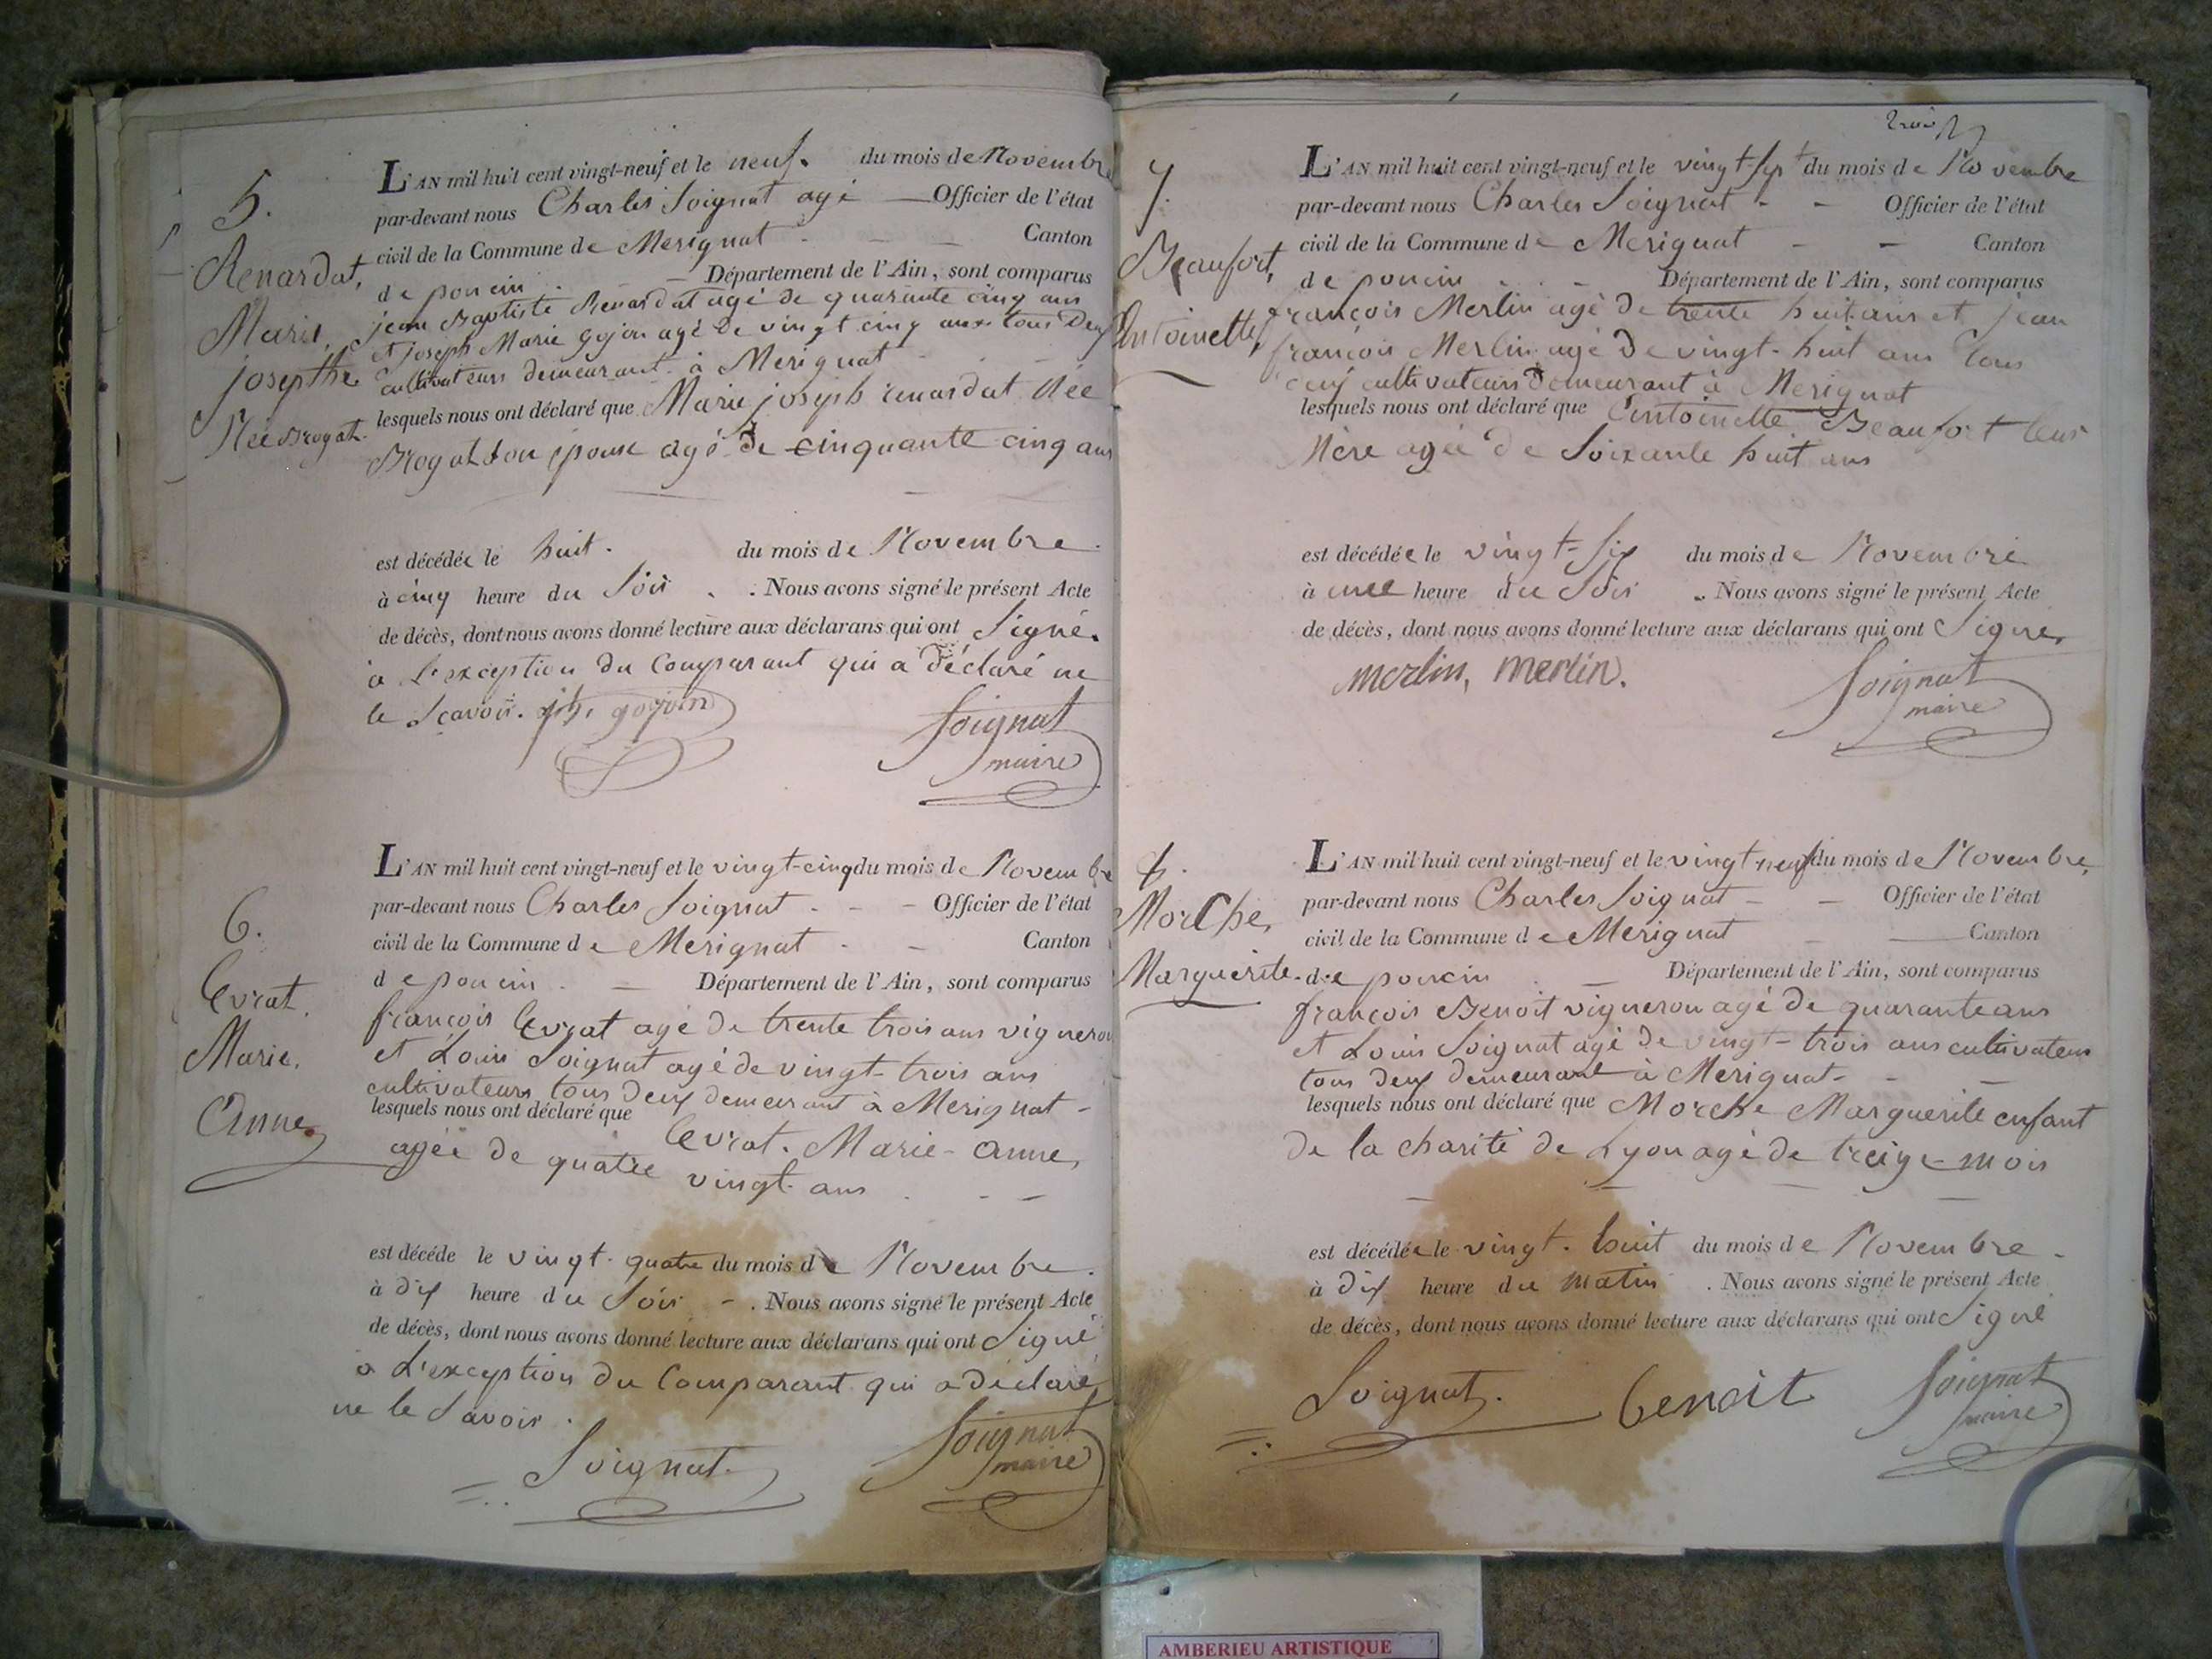 5.
Renardat,
Marie,
josephte
Née Brogat.
L'AN mil huit cent vingt-neuf et le neuf. du mois de Novembre
par-devant nous Charles Soignat agé Officier de l'état
civil de la Commune de Merignat Canton
de poncin Département de l'Ain, sont comparus
jean Baptiste Renardat agé de quarante cinq ans
et joseph Marie gojon agé De vingt cinq ans tous Deux
cultivateurs demeurant à Merignat
lesquels nous ont déclaré que Marie joseph renardat Née
Brogat son épouse agé de cinquante cinq ans
est décédée le huit. du mois de Novembre.
à cinq heure du Soir . Nous avons signé le présent Acte
de décès, dont nous avons donné lecture aux déclarans qui ont Signé.
à l'exception du Comparant qui a déclaré ne
le Scavoir. jph. gojon
Soignat
maire
6.
Evrat.
Marie.
Anne
L'AN mil huit cent vingt-neuf et le vingt-cinq du mois de Novembre
par-devant nous Charles Soignat Officier de l'état
civil de la Commune de Merignat Canton
de poncin Département de l'Ain, sont comparus
françois Evrat agé de trente trois ans vigneron
et Louis Soignat agé de vingt-trois ans
cultivateurs tous deux demeurant à Merignat
lesquels nous ont déclaré que Evrat. Marie-Anne,
agée de quatre vingt ans
est décéde le vingt-quatre du mois de Novembre.
à dix heure du Soir . Nous avons signé le présent Acte
de décès, dont nous avons donné lecture aux déclarans qui ont Signé
à L'exception du Comparant qui a déclaré
ne le Savoir.
Soignat.
Soignat
maire
7.
Beaufort,
Antoinette,
L'AN mil huit cent vingt-neuf et le vingt-sept du mois de Novembre
par-devant nous Charles Soignat Officier de l'état
civil de la Commune de Merignat Canton
de poncin Département de l'Ain, sont comparus
françois Merlin agé de trente huit ans et jean
françois Merlin agé de vingt-huit ans tous
deux cultivateurs demeurant à Merignat
lesquels nous ont déclaré que Antoinette Beaufort leur
Mère agée de Soixante huit ans
est décédée le vingt-six du mois de Novembre
à une heure du Soir . Nous avons signé le présent Acte
de décès, dont nous avons donné lecture aux déclarans qui ont Signé,
merlin, merlin.
Soignat
maire
8.
Morche,
Marguerite.
L'AN mil huit cent vingt-neuf et le vingt neuf du mois de Novembre,
par-devant nous Charles Soignat Officier de l'état
civil de la Commune de Merignat Canton
de poncin Département de l'Ain, sont comparus
françois Benoit vigneron agé de quarante ans
et Louis Soignat agé de vingt-trois ans cultivateur
tous deux demeurant à Merignat
lesquels nous ont déclaré que Morche Marguerite enfant
de la charité de Lyon agé de treize mois
est décédée le vingt-huit du mois de Novembre
à dix heure du matin . Nous avons signé le présent Acte
de décès, dont nous avons donné lecture aux déclarans qui ont Signé
Soignat. benoit
Soignat
maire
AMBERIEU ARTISTIQUE